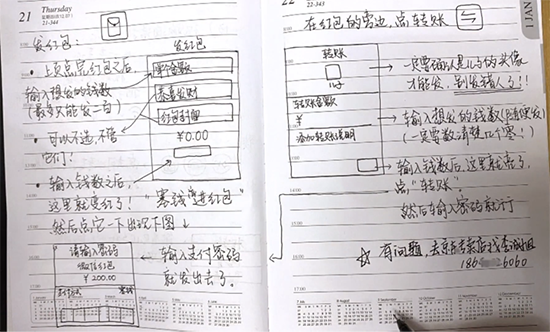 21 Thursday
21-344
发红包:
发红包
• 上页点完红包之后
输入想发的钱数
(最多只能发二百)
单个金额
恭喜发财
红包封面
¥0.00
• 可以不选,不管
它们!
• 输入钱数之后,
这里就变红了!
"塞钱进红包"
然后点它一下出现下图↓
请输入密码
微信红包
¥200.00
支付方式
零钱
← 输入支付密码
就发出去了。
22
22-343
JAN
在红包的旁边,点转账
转账
儿子
转账金额
¥
添加转账说明
一定要确认是儿子的头像
才能发,别发错人了!!
输入想发的钱数(随便发)
(一定要数清楚几个零!)
输入钱数后,这里就亮了,
点"转账"。
然后输入密码就行
☆ 有问题,去京东专卖店找李
186
6060